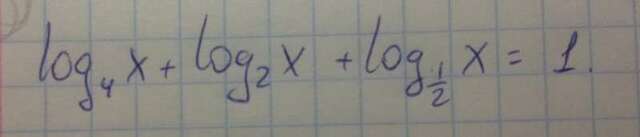 log₄ x + log₂ x + log_{1/2} x = 1.